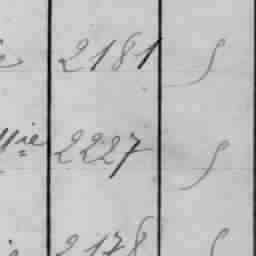 2181 S
llie 2227 S
2178 S